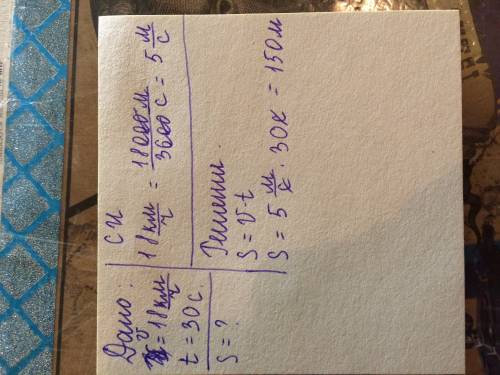 Дано:
v = 18 км/ч
t = 30 с.
S = ?
СИ
18 км/ч = 18000 м / 3600 с = 5 м/с
Решении.
S = v·t
S = 5 м/с · 30 с = 150 м